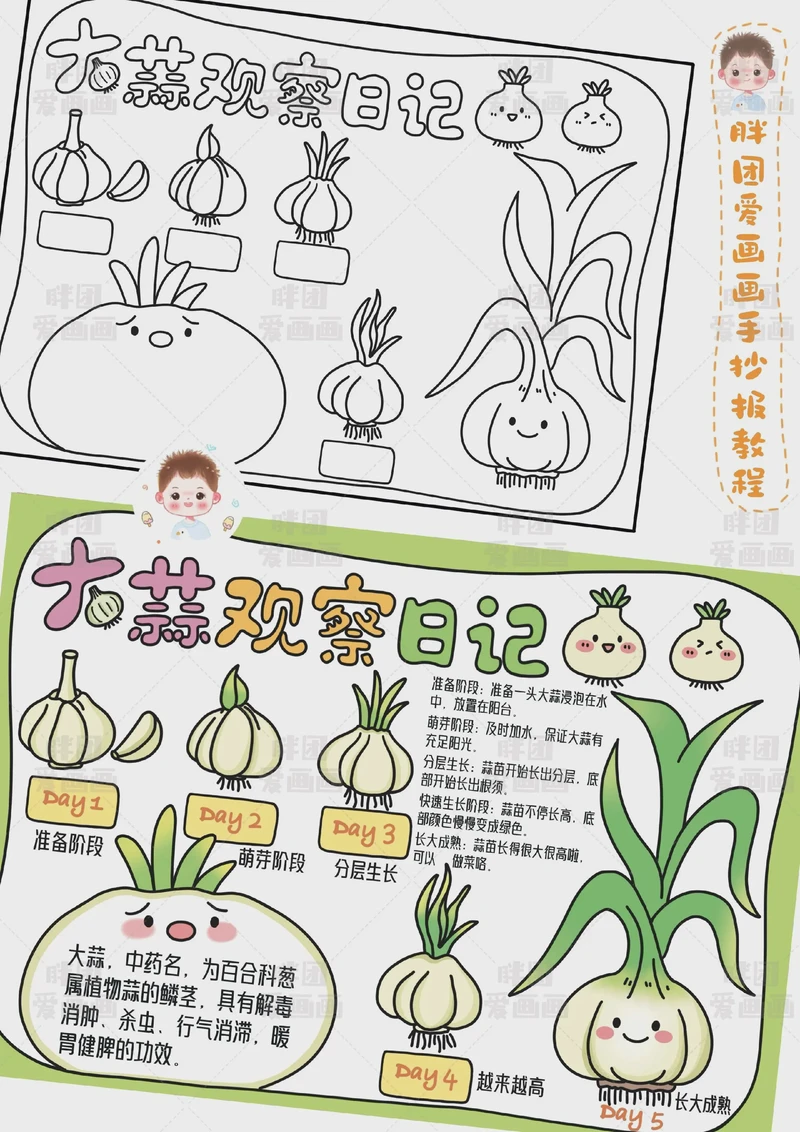 大蒜观察日记
胖团爱画画手抄报教程
大蒜观察日记
准备阶段：准备一头大蒜浸泡在水
中，放置在阳台。
萌芽阶段：及时加水，保证大蒜有
充足阳光。
分层生长：蒜苗开始长出分层，底
部开始长出根须。
快速生长阶段：蒜苗不停长高，底
部颜色慢慢变成绿色。
长大成熟：蒜苗长得很大很高啦，
可以 做菜咯。
Day 1
准备阶段
Day 2
萌芽阶段
Day 3
分层生长
大蒜，中药名，为百合科葱
属植物蒜的鳞茎，具有解毒
消肿、杀虫、行气消滞，暖
胃健脾的功效。
Day 4
越来越高
Day 5
长大成熟
胖团
爱画画